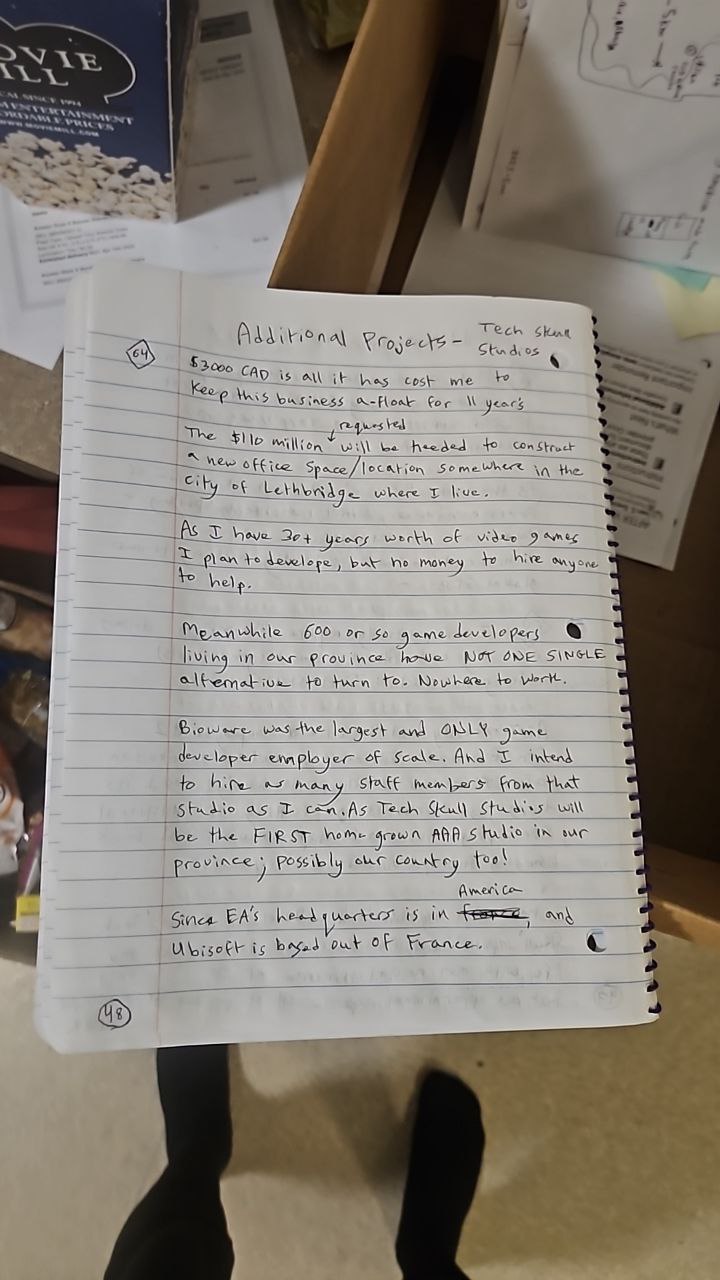 OVIE
ILL
CAL SINCE 1994
M ENTERTAINMENT
ORDABLE PRICES
WWW.MOVIEMILL.COM
Additional Projects- Tech Skull
Studios
64
$3000 CAD is all it has cost me to
keep this business a-float for 11 year's
requested
The $110 million will be needed to construct
a new office space/location somewhere in the
city of Lethbridge where I live.
As I have 30+ years worth of video games
I plan to develope, but no money to hire anyone
to help.
Meanwhile 600 or so game developers
living in our province have NOT ONE SINGLE
alternative to turn to. Nowhere to work.
Bioware was the largest and ONLY game
developer employer of scale. And I intend
to hire as many staff members from that
studio as I can. As Tech Skull Studios will
be the FIRST home grown AAA studio in our
province; possibly our country too!
America
Since EA's headquarters is in , and
Ubisoft is based out of France.
48